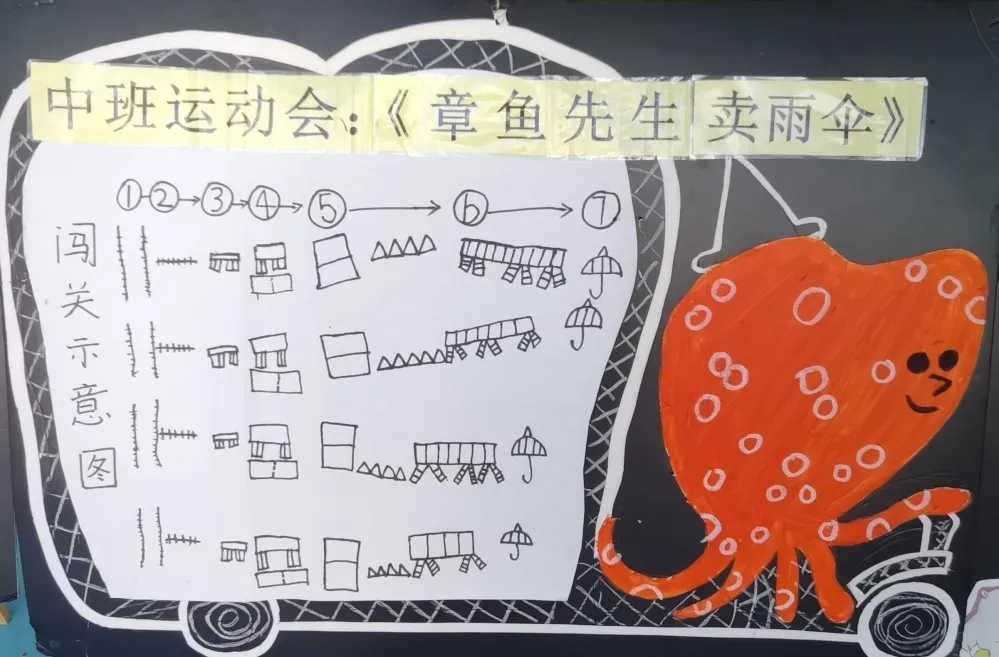 中班运动会:《章鱼先生卖雨伞》
①②③④⑤⑥⑦
闯关示意图